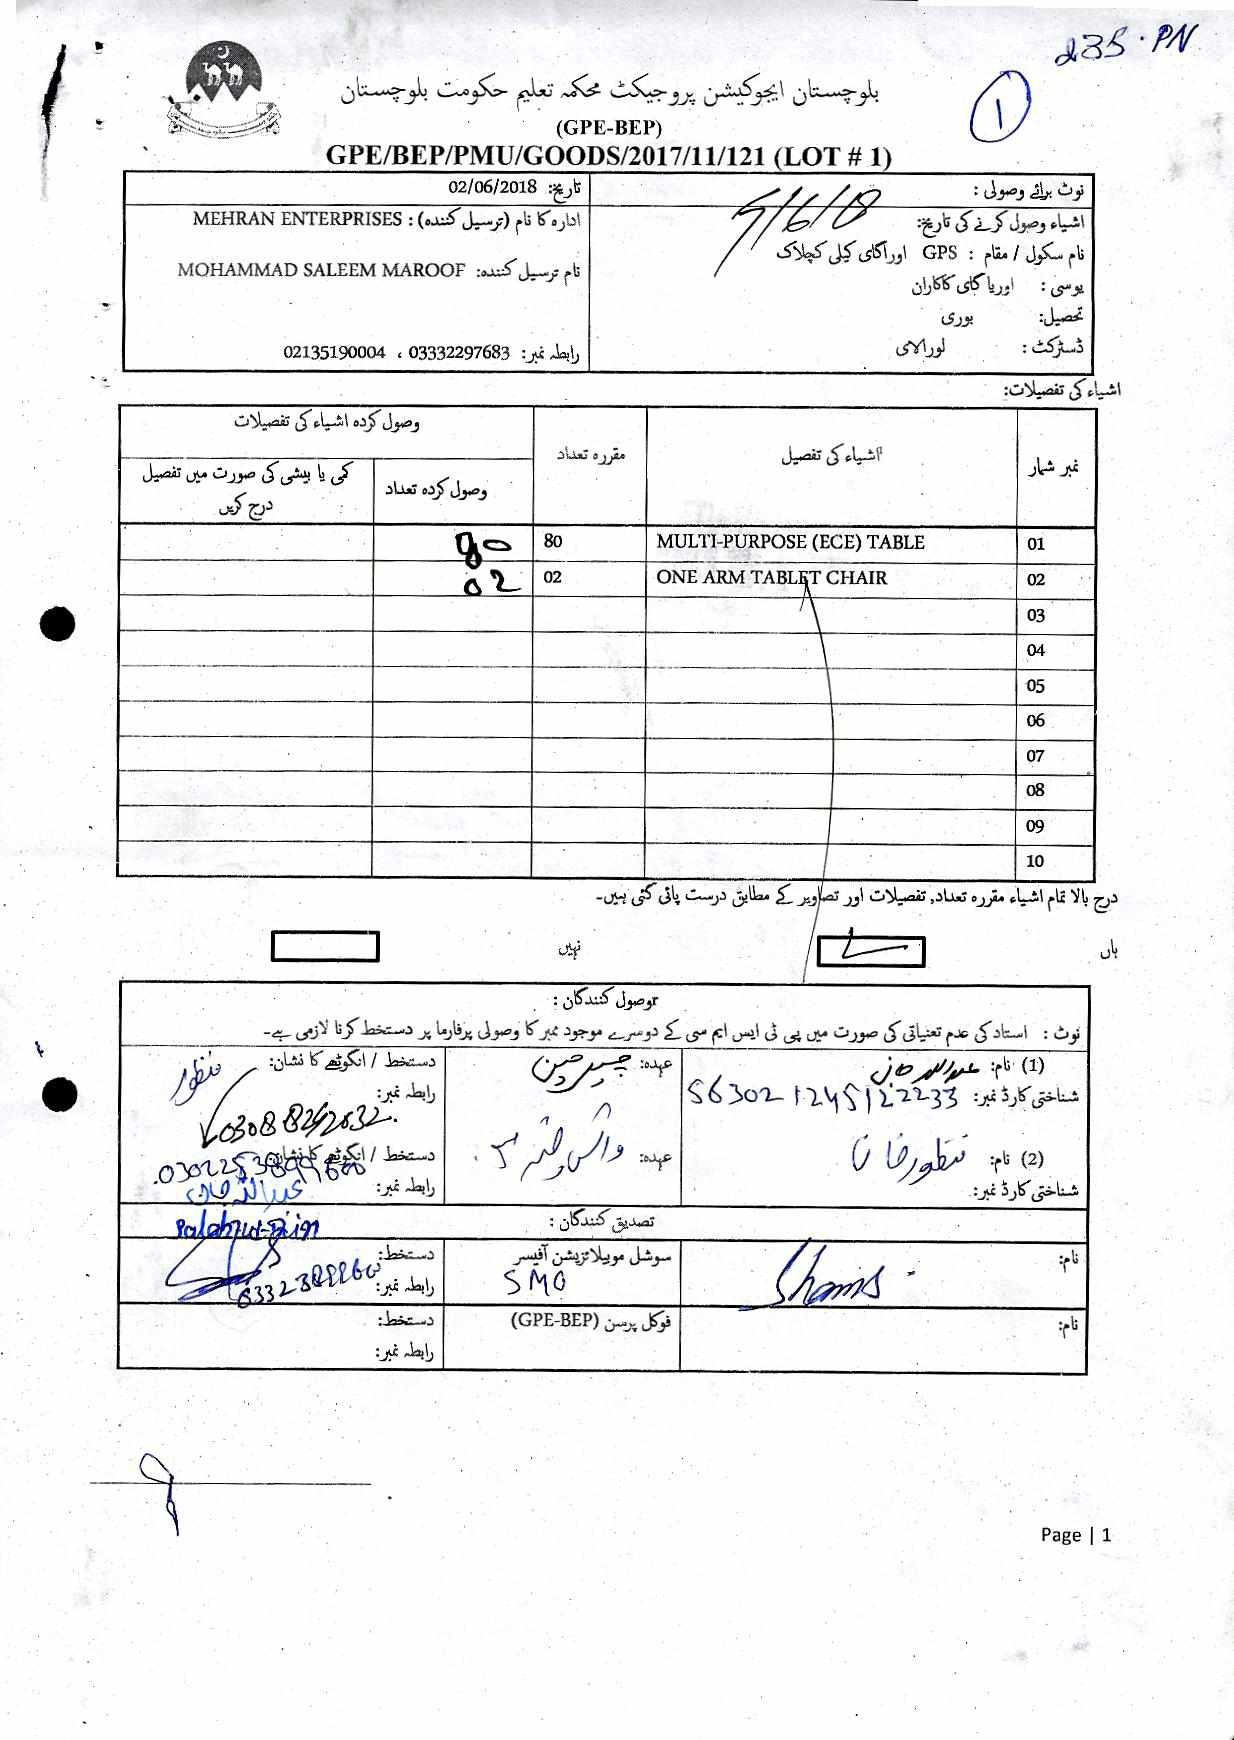 235-PN
1
بلوچستان ایجوکیشن پروجیکٹ محکمہ تعلیم حکومت بلوچستان
(GPE-BEP)
GPE/BEP/PMU/GOODS/2017/11/121 (LOT # 1)
نوٹ برائے وصولی :
تاریخ: 02/06/2018
اشیاء وصول کرنے کی تاریخ: 5/6/18
ادارہ کا نام (ترسیل کنندہ) : MEHRAN ENTERPRISES
نام سکول / مقام : GPS اوراگای کیلی کچلاک
نام ترسیل کنندہ: MOHAMMAD SALEEM MAROOF
یوسی : اوریاگای کاکاران
تحصیل: بوری
ڈسٹرکٹ : لورالای
رابطہ نمبر: 03332297683 ، 02135190004
اشیاء کی تفصیلات:
نمبر شمار
اشیاء کی تفصیل
مقررہ تعداد
وصول کردہ اشیاء کی تفصیلات
وصول کردہ تعداد
کمی یا بیشی کی صورت میں تفصیل
درج کریں
01 MULTI-PURPOSE (ECE) TABLE 80 80
02 ONE ARM TABLET CHAIR 02 02
03
04
05
06
07
08
09
10
درج بالا تمام اشیاء مقررہ تعداد, تفصیلات اور تصاویر کے مطابق درست پائی گئی ہیں۔
ہاں
نہیں
وصول کنندگان :
نوٹ : استاد کی عدم تعنیاتی کی صورت میں پی ٹی ایس ایم سی کے دوسرے موجود ممبر کا وصولی پرفارما پر دستخط کرنا لازمی ہے۔
(1) نام: عبداللہ جان
عہدہ: چیئرمین
دستخط / انگوٹھے کا نشان: منظور
شناختی کارڈ نمبر:
رابطہ نمبر:
(2) نام: منظور خان
عہدہ:
دستخط / انگوٹھے کا نشان:
شناختی کارڈ نمبر:
رابطہ نمبر: عبداللہ جان
تصدیق کنندگان :
نام: Shams
سوشل موبیلائزیشن آفیسر
SMO
دستخط:
رابطہ نمبر:
نام:
فوکل پرسن (GPE-BEP)
دستخط:
رابطہ نمبر:
Page | 1